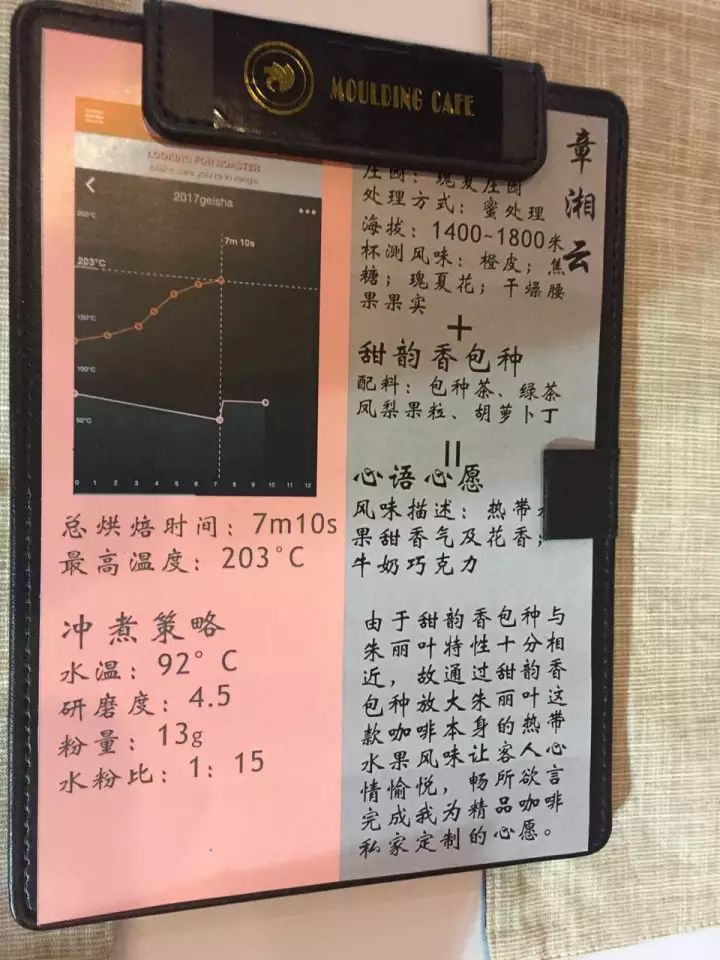 MOULDING CAFE
LOOKING FOR ROASTER
Make sure you're in range
2017geisha
250°C
7m 10s
203°C
150°C
100°C
50°C
0 1 2 3 4 5 6 7 8 9 10 11 12
总烘焙时间：7m10s
最高温度：203°C
冲煮策略
水温：92°C
研磨度：4.5
粉量：13g
水粉比：1：15
章湘云
庄园：瑰夏庄园
处理方式：蜜处理
海拔：1400~1800米
杯测风味：橙皮；焦
糖；瑰夏花；干燥腰
果果实
+
甜韵香包种
配料：包种茶、绿茶
凤梨果粒、胡萝卜丁
=
心语心愿
风味描述：热带水
果甜香气及花香；
牛奶巧克力
由于甜韵香包种与
朱丽叶特性十分相
近，故通过甜韵香
包种放大朱丽叶这
款咖啡本身的热带
水果风味让客人心
情愉悦，畅所欲言
完成我为精品咖啡
私家定制的心愿。